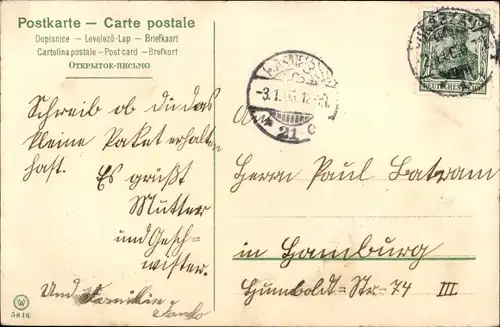 Postkarte — Carte postale
Dopisnice – Levelezö-Lap – Briefkaart
Cartolina postale – Post card – Brefkort
ОТКРЫТОЕ-ПИСЬМО
Schreib ob du das
kleine Paket erhalten
hast.
Es grüßt
Mutter
und Gesch-
wister.
Und Familie
5846
DEUTSCHES REICH
21 c
An
Herrn Paul Batram
in Hamburg
Humboldt-Str-74 III